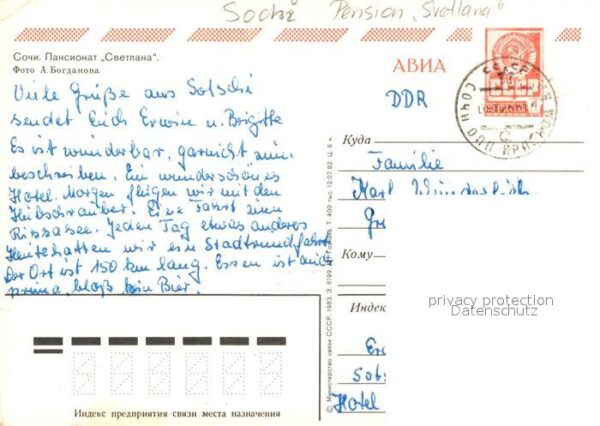 Sochi Pension „Svetlana“
Сочи. Пансионат „Светлана“.
Фото А. Богданова
АВИА
СССР
Viele Grüße aus Sotschi
sendet Euch Erwin u. Brigitte
Es ist wunderbar, garnicht zum
beschreiben. Ein wunderschönes
Hotel. Morgen fliegen wir mit den
Hubschrauber. Eine Fahrt zum
Rizzasee. Jeden Tag etwas anderes
Heute hatten wir eine Stadtrundfahrt
Der Ort ist 150 km lang. Essen ist auch
prima bloß kein Bier.
DDR
Куда
Familie
Karl
Кому
Индекс
Sots
Hotel
privacy protection
Datenschutz
© Министерство связи СССР, 1983. З. 6199.
Т. 400 тыс. 12.07.82. Ц. 6 к.
Индекс предприятия связи места назначения